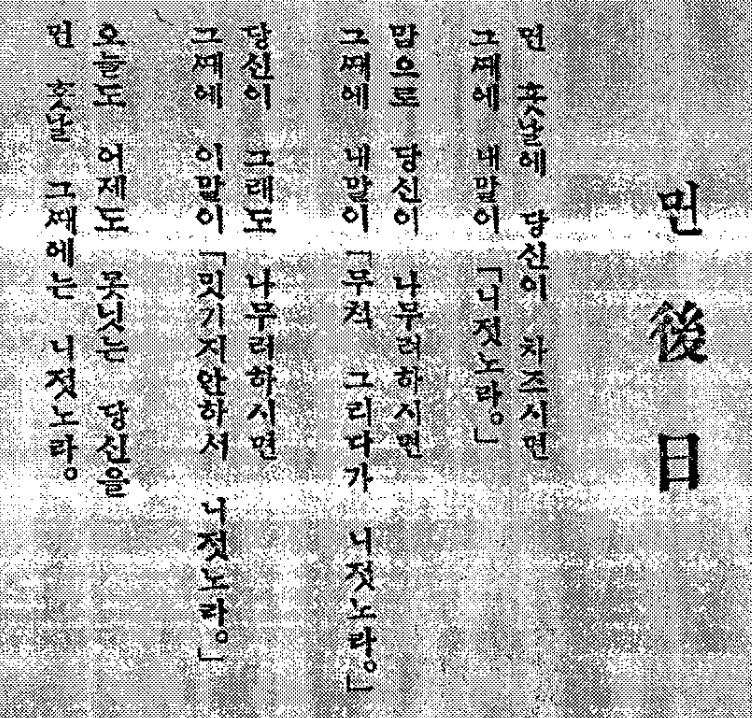 먼 後日
먼 훗날에 당신이 차즈시면
그ᄯᅢ에 내말이 「니젓노라。」
맘으로 당신이 나무려하시면
그ᄯᅢ에 내말이 「무척 그리다가 니젓노라。」
당신이 그래도 나무려하시면
그ᄯᅢ에 이말이 「밋기지안하서 니젓노라。」
오늘도 어제도 못닛는 당신을
먼 훗날 그ᄯᅢ에는 니젓노라。